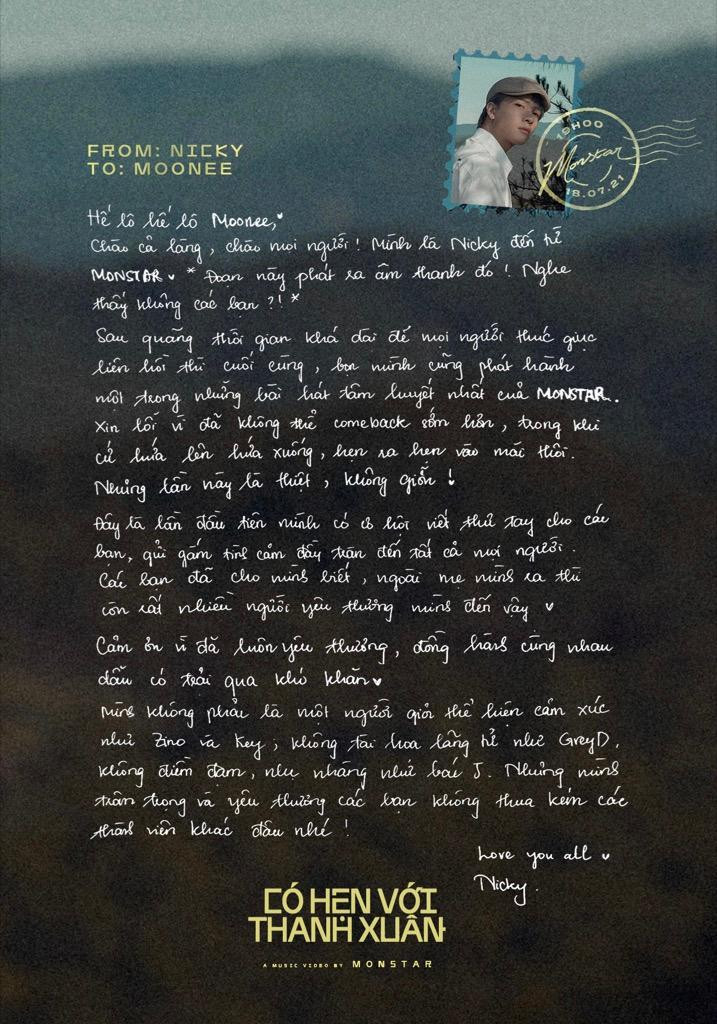 19H00
Monstar
18.07.21
FROM: NICKY
TO: MOONEE
Hế lô hế lô Moonee,♥
Chào cả làng, chào mọi người! Mình là Nicky đến từ
MONSTAR ♥ * Đoạn này phát ra âm thanh đó! Nghe
thấy không các bạn ?! *
Sau quãng thời gian khá dài để mọi người thúc giục
liên hồi thì cuối cùng, bọn mình cũng phát hành
một trong những bài hát tâm huyết nhất của MONSTAR.
Xin lỗi vì đã không thể comeback sớm hơn, trong khi
cứ hứa lên hứa xuống, hẹn ra hẹn vào mãi thôi.
Nhưng lần này là thiệt, không giỡn !
Đây là lần đầu tiên mình có cơ hội viết thư tay cho các
bạn, gửi gắm tình cảm đầy tràn đến tất cả mọi người.
Các bạn đã cho mình biết, ngoài mẹ mình ra thì
còn rất nhiều người yêu thương mình đến vậy ♥
Cảm ơn vì đã luôn yêu thương, đồng hành cùng nhau
dẫu có trải qua khó khăn♥
Mình không phải là một người giỏi thể hiện cảm xúc
như Zino và Key, không tài hoa lãng tử như GreyD,
không điềm đạm, nhẹ nhàng như bác J. Nhưng mình
trân trọng và yêu thương các bạn không thua kém các
thành viên khác đâu nhé !
Love you all ♥
Nicky.
CÓ HẸN VỚI
THANH XUÂN
A MUSIC VIDEO BY MONSTAR